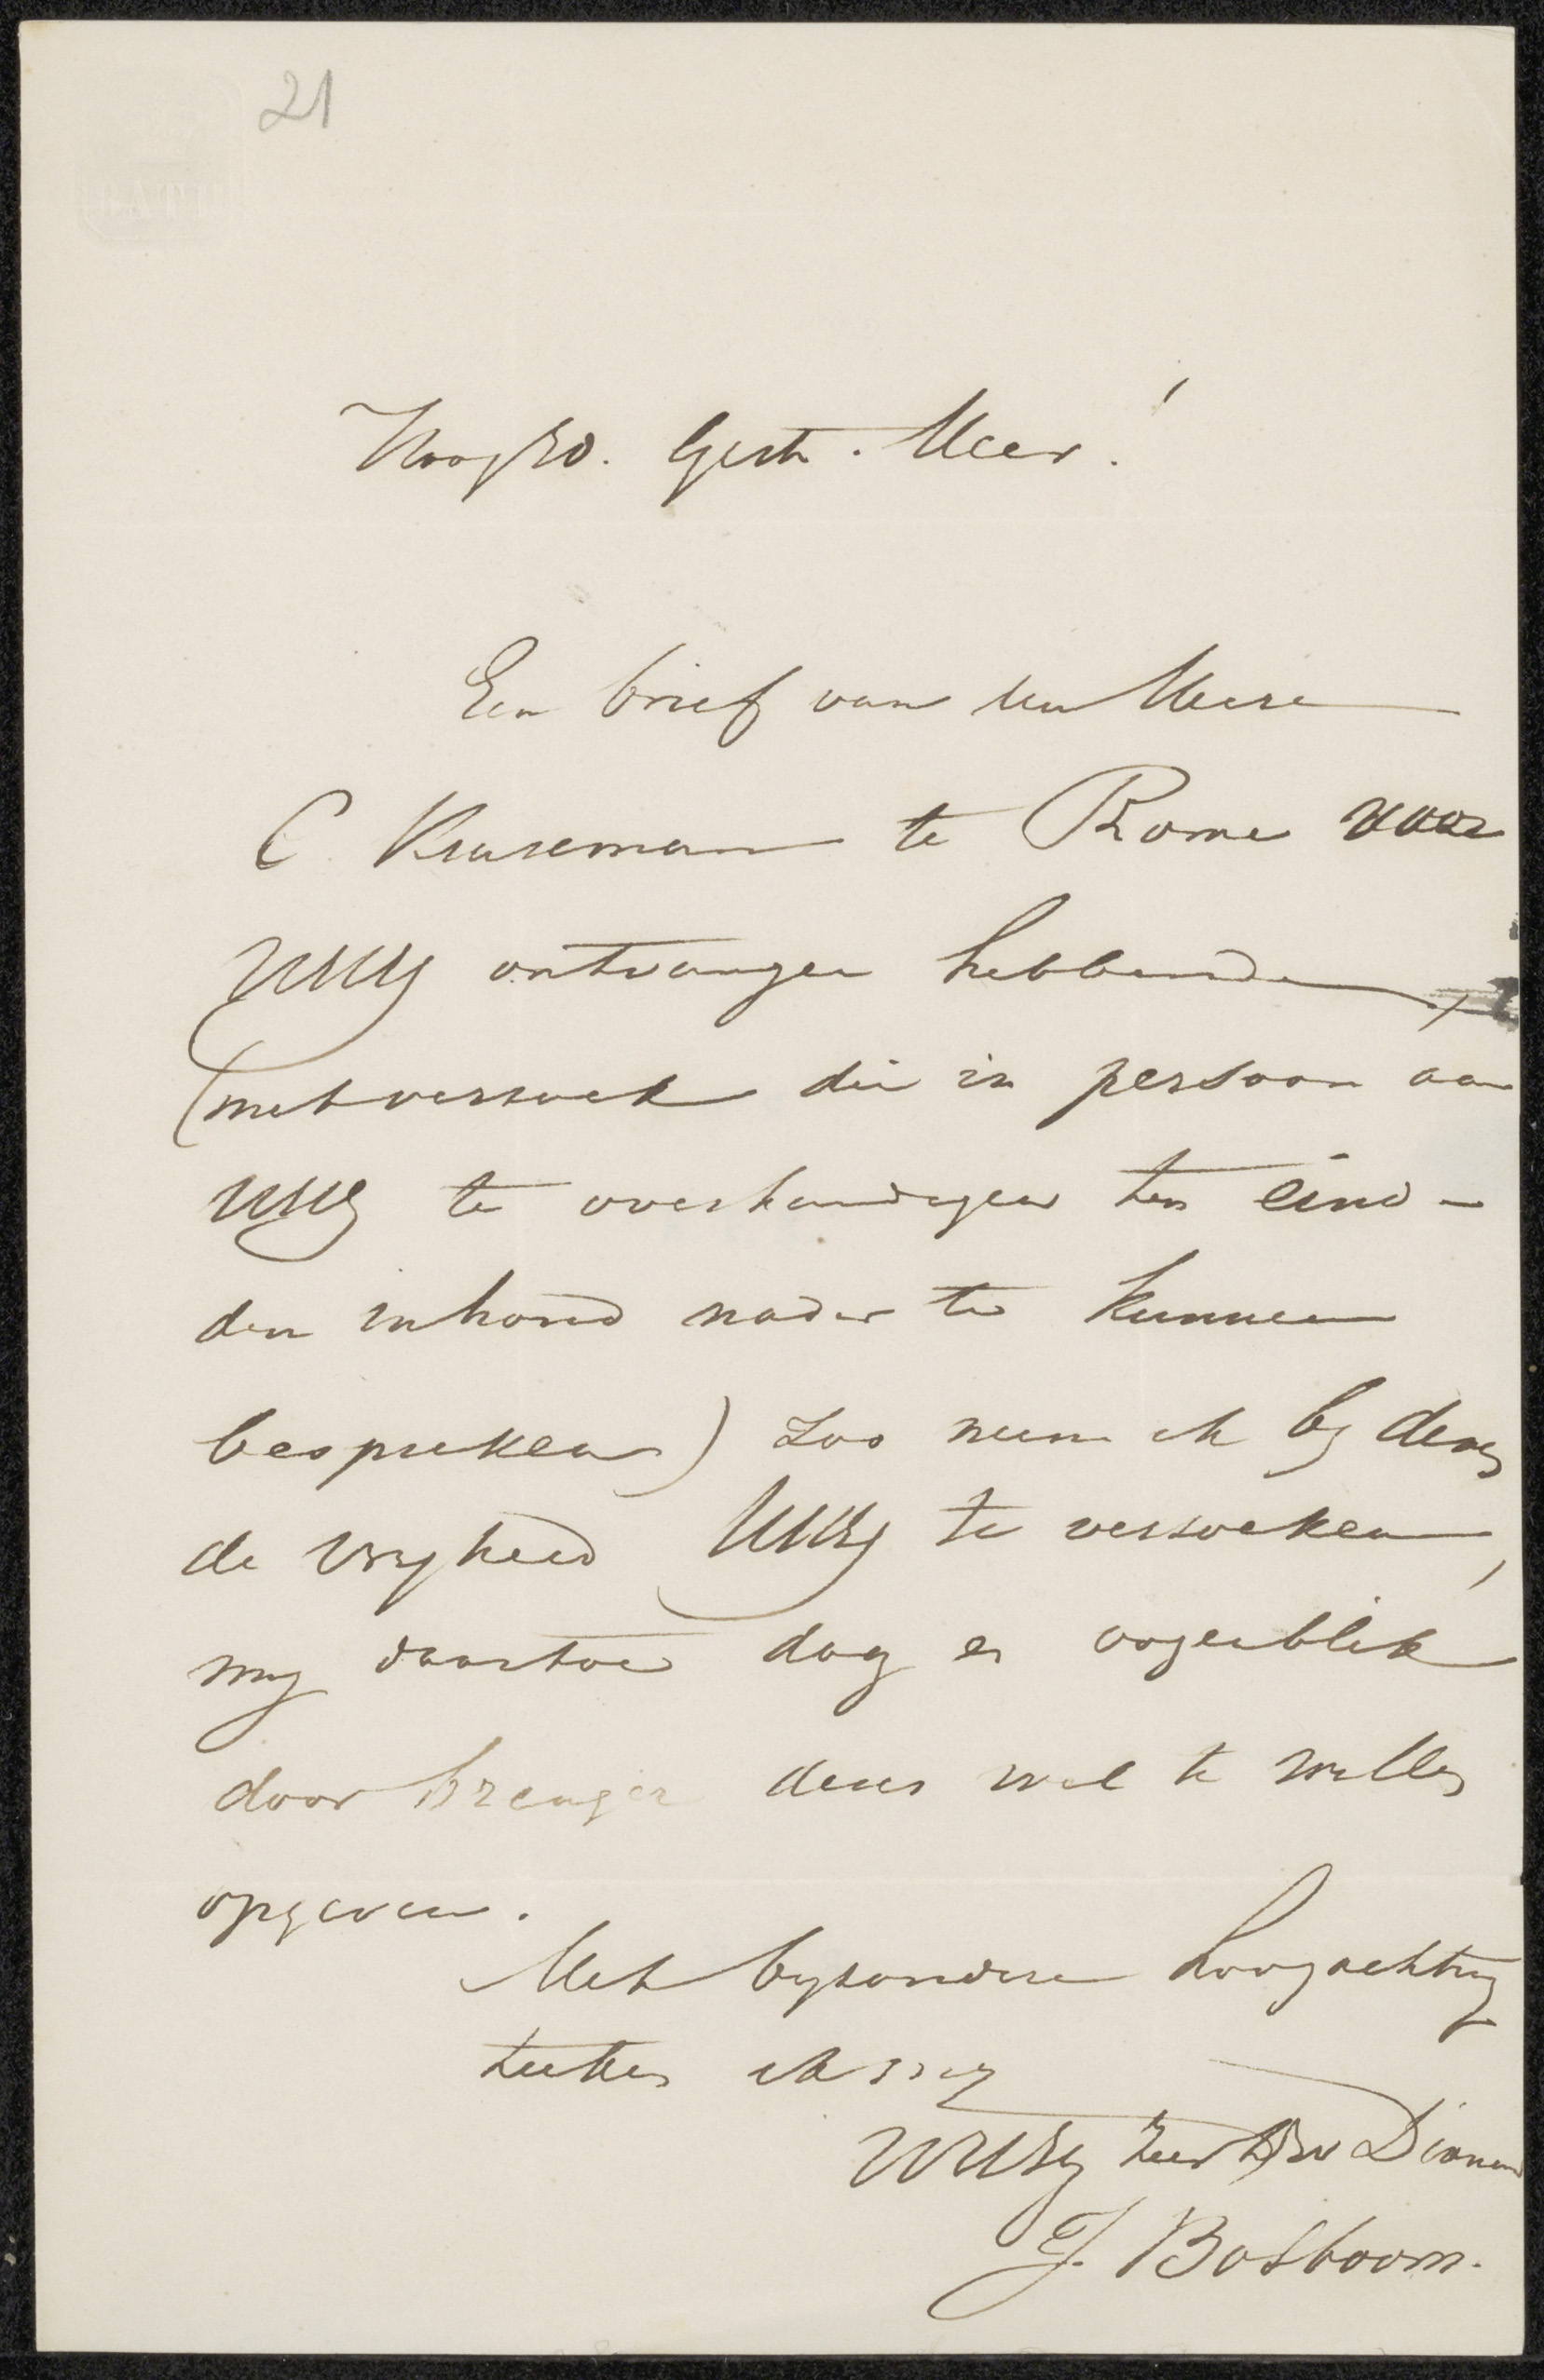 21
Hoog Ed. Gestr. Heer!
Een brief van den Heere
C Kruseman te Rome voor
UHEG ontvangen hebbende,
(met versoek die in persoon aan
UHEG te overhandigen ten eind-
den inhoud nader te kunnen
bespreken) Zoo neem ik by dezen
de vryheid UHEG te versoeken,
my daartoe dag en oogenblik
door brenger dezes wel te willen
opgeven.
Met byzondere hoogachting
teeken ik my
UHEG zeer Dw Dienaar
J. Bosboom.